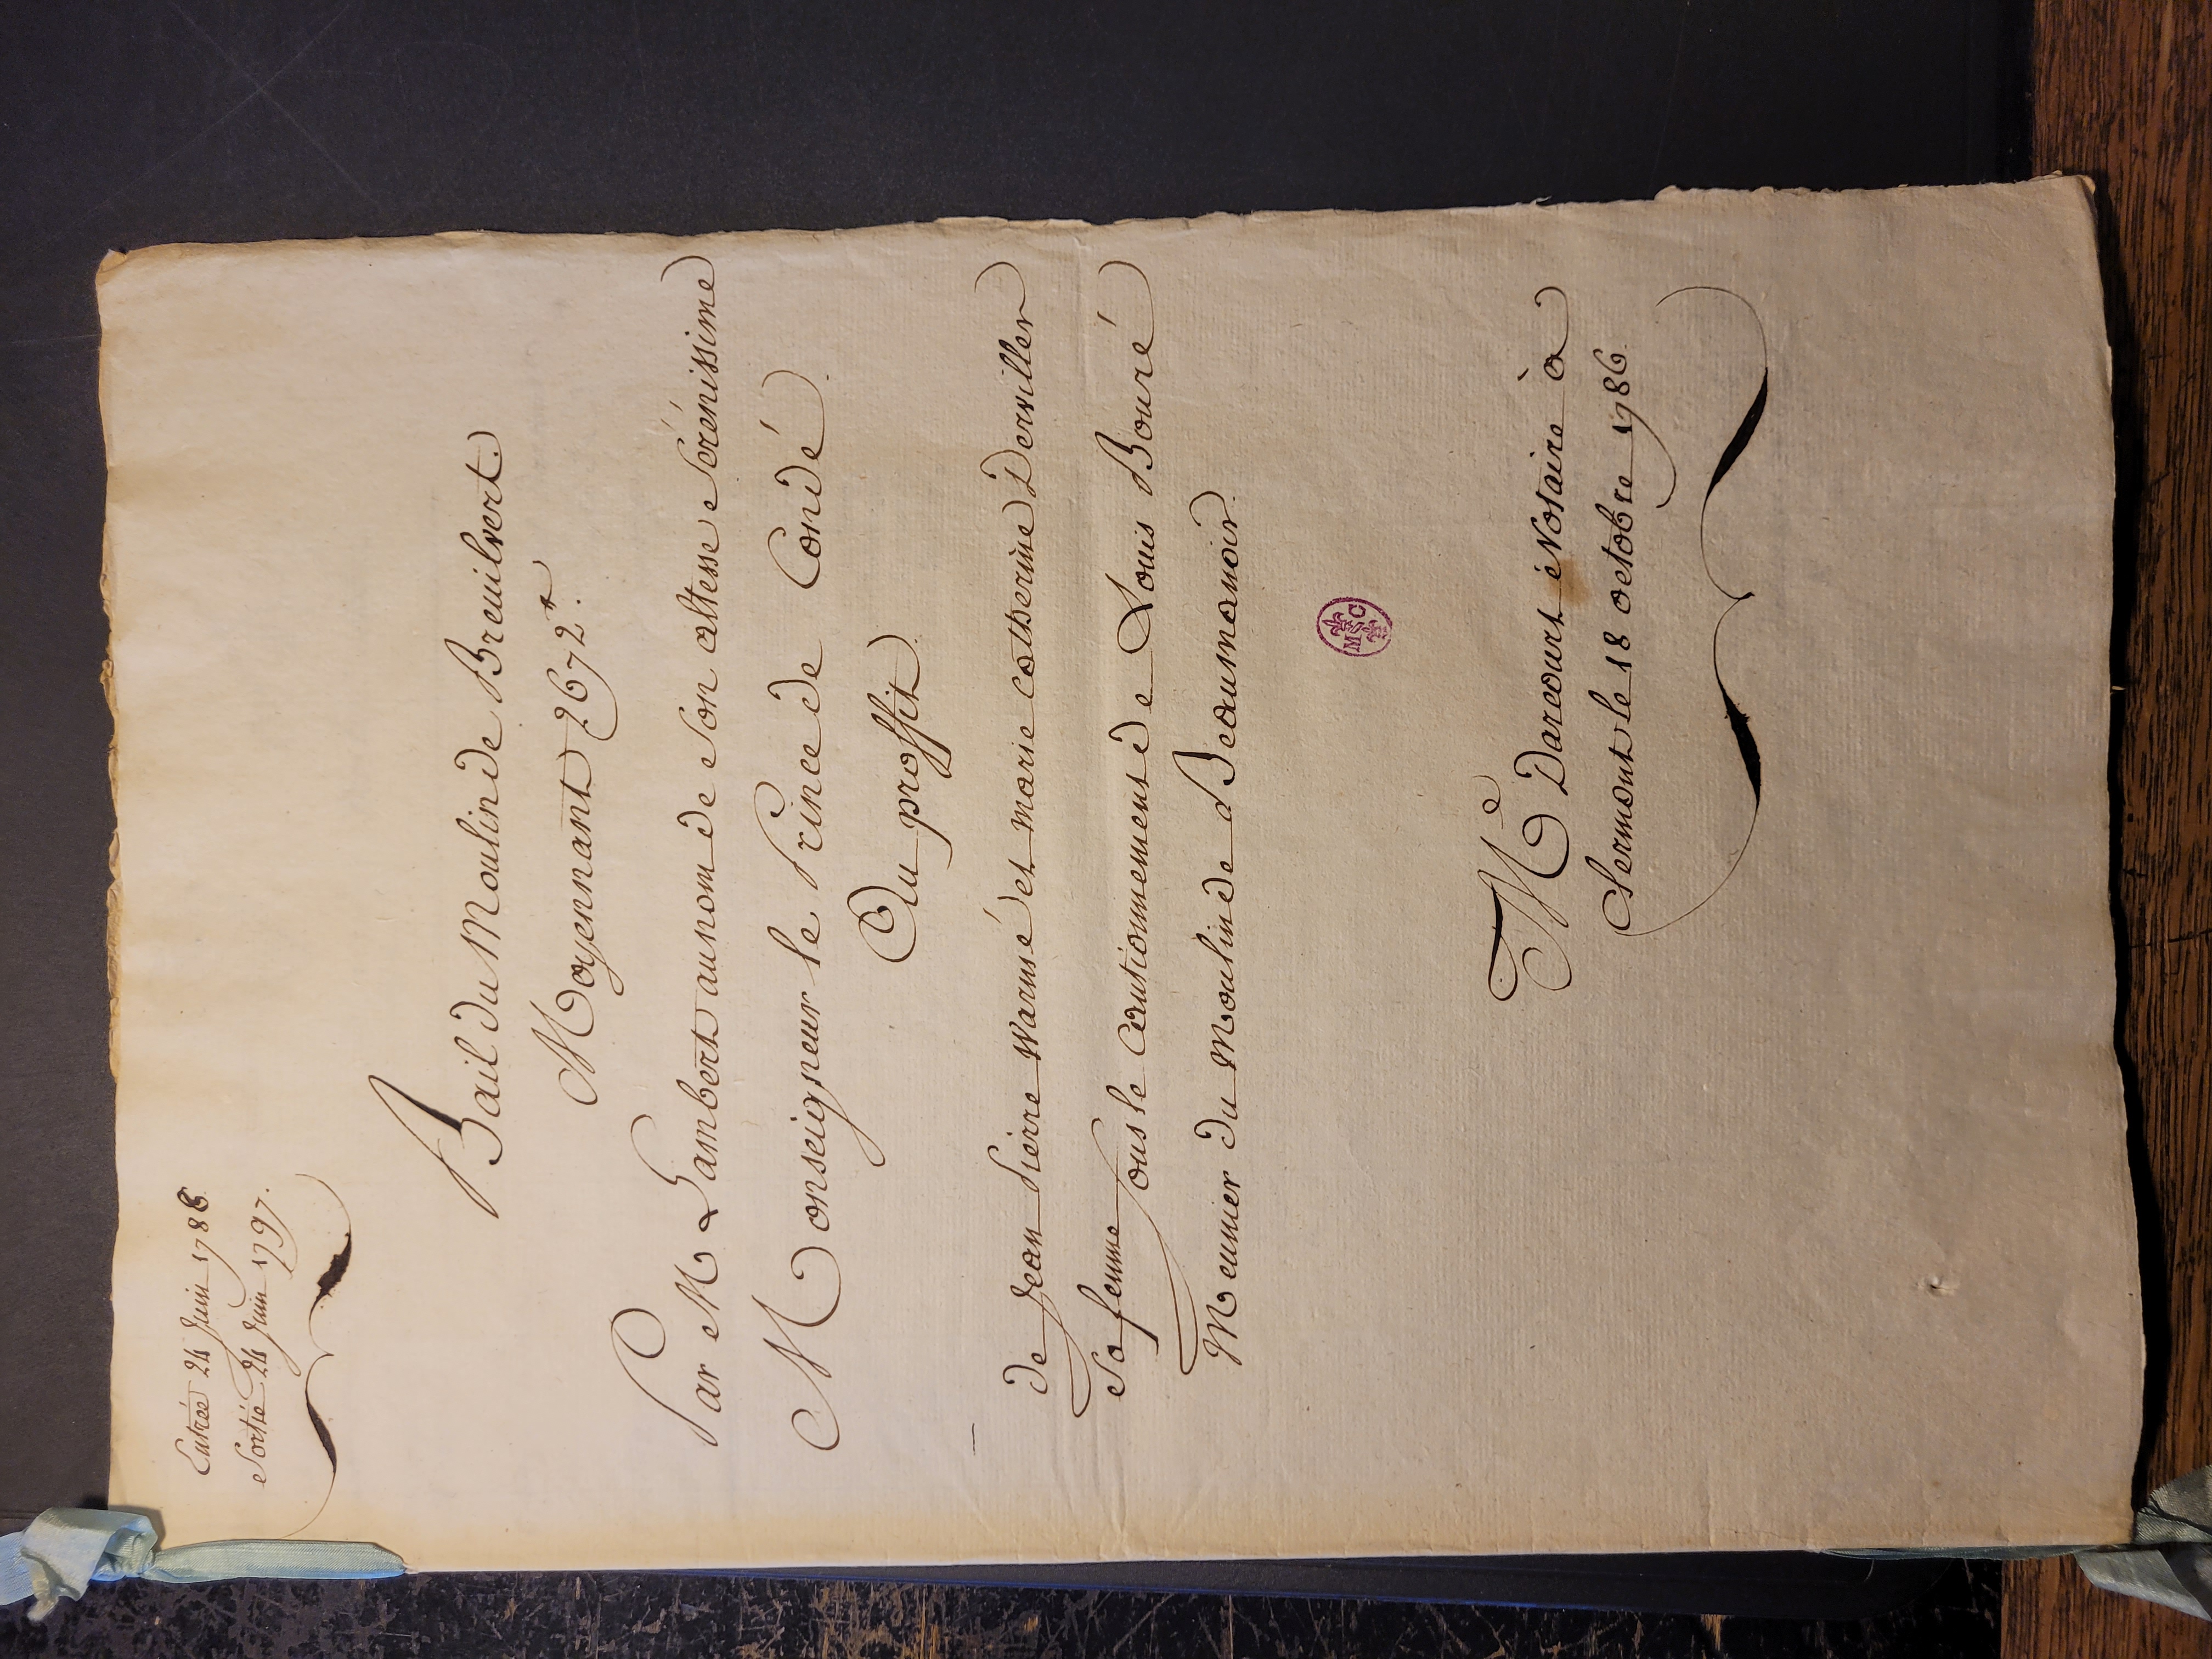 Entrée 24 Juin 1786.
Sortie 24 Juin 1797.
Bail du Moulin de Breuilvert.
Moyennant 2672.tt
Par M Lambert au nom de Son altesse Sérénissime
Monseigneur le Prince de Condé.
Au proffit
de Jean Pierre Warmé et marie catherine Derviller
Sa femme Sous le Cautionnement de Louis Bouré
Meunier du Moulin de Beaumanoir.
M C
Me Darcourt Notaire à
Clermont le 18 octobre 1786.